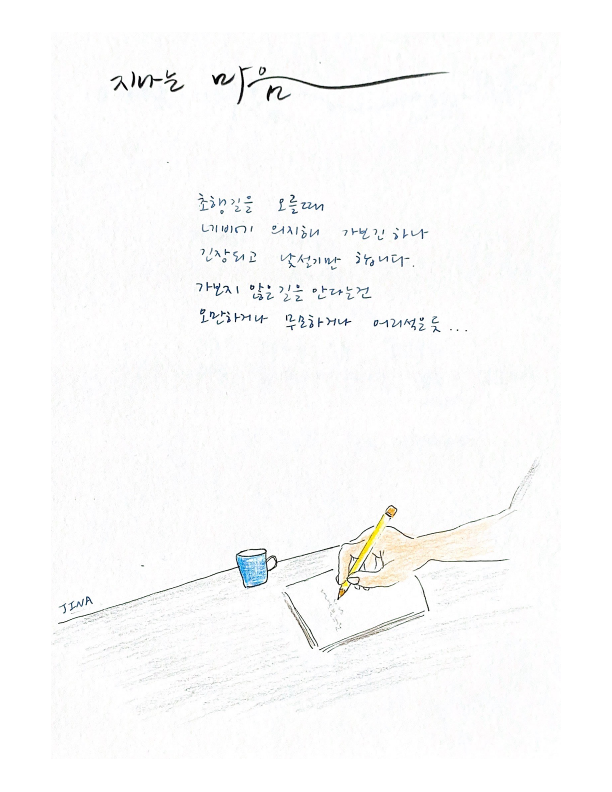 지나는 마음
초행길을 오를때
네비에 의지해 가보긴 하나
긴장되고 낯설기만 합니다.
가보지 않은 길을 안다는건
오만하거나 무모하거나 어리석을 듯...
JINA